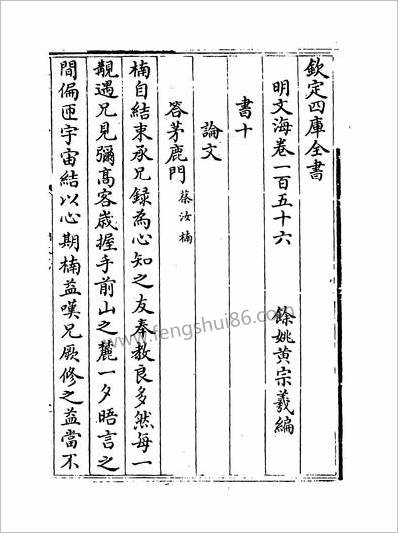 欽定四庫全書
明文海卷一百五十六
餘姚黃宗羲編
書十
論文
答茅鹿門
蔡汝楠
楠自結束承兄録為心知之友奉教良多然每一
覩遇兄見彌髙客嵗握手前山之麓一夕晤言之
間偏匝宇宙結以心期楠益嘆兄厥修之益當不
www.fengshui86.com